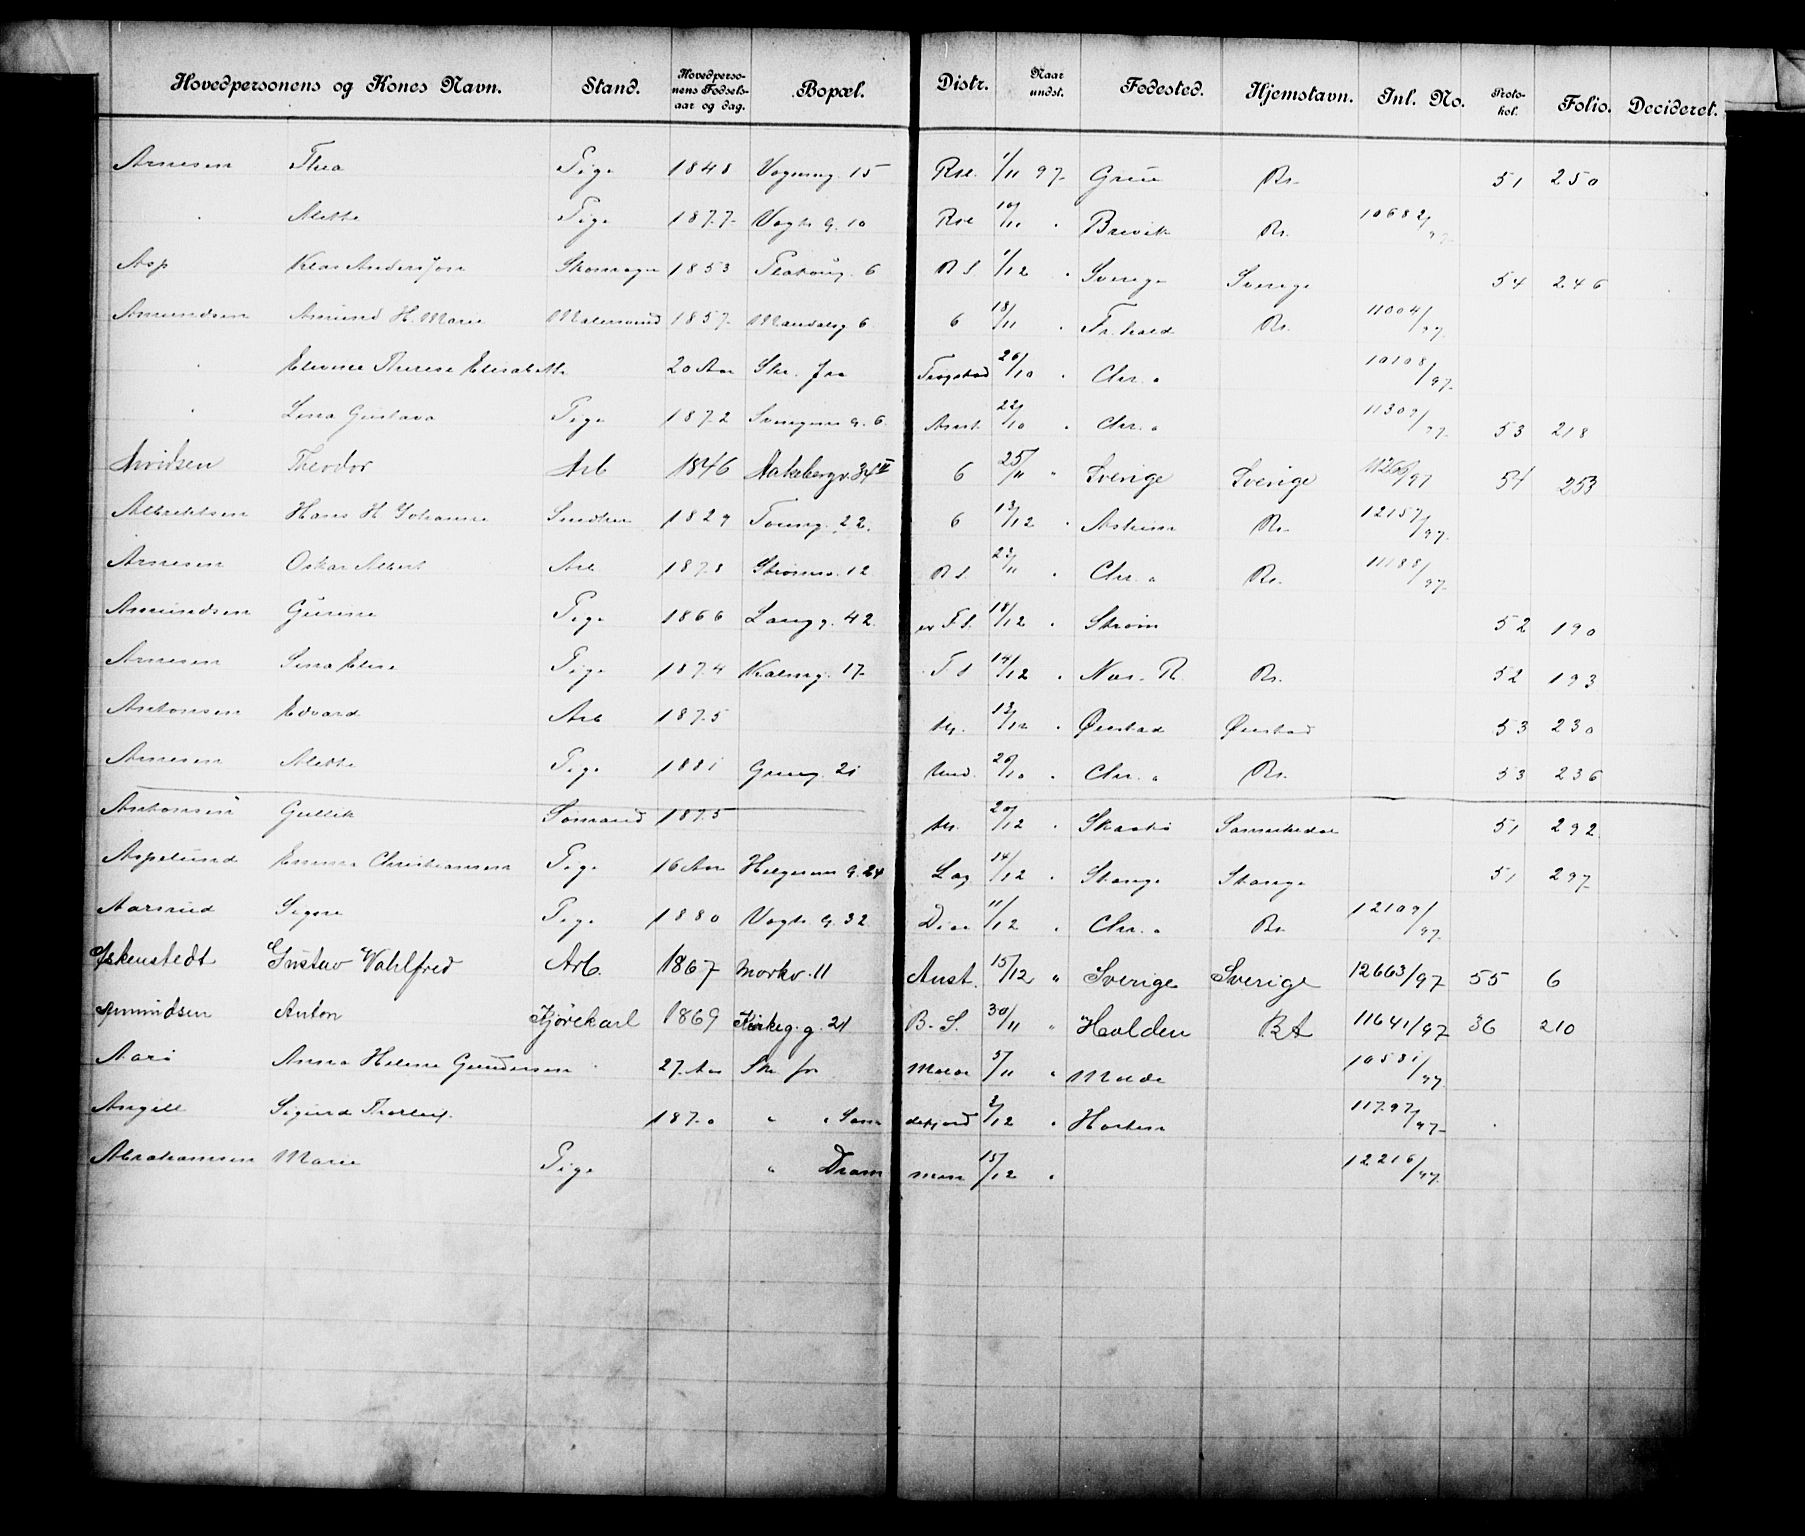 Hovedpersonens og Kones Navn. Stand. Hovedpersonens Fødselsaar og dag. Bopæl. Distr. Naar undst. Fødested. Hjemstavn. Inl. No. Protokol. Folio. Decideret.
Arnesen Thea Pige 1848 Vognmg. 15 1/11 97 Grue Rr. 51 250
" Alette Pige 1877 Vogts g. 10 10/11 " Brevik Rr. 10682/97
Asp Klas Andersson Skomager 1853 6 B S 1/12 " Sverige Sverige 54 246
Amundsen Amund H. Marie Malersvend 1857 Mandalsg 6 6 18/11 " Fr.hald Rr. 11004/97
" Elevine Therese Elisabeth 20 Aar Skr. fra Trogstad 26/10 " Chr.a 10108/97
" Lina Gustava Pige 1872 g. 6 Anst. 22/10 " Chr.a 11309/97 53 218
Arvidsen Theodor Arb 1846 Aakebergv. 34 II 6 25/11 " Sverige Sverige 54 253
Albrektsen Hans H Johanne Snedker 1829 Toieng. 22 6 13/12 " Askim Rr. 12157/97
Arnesen Oskar Albert Arb 1878 Strømsv. 12 B S. 23/11 " Chr.a Rr. 11188/97
Amundsen Gunine Pige 1866 Langg. 42 F.S. 18/12 " Strøm 52 190
Arnesen Lina Elise Pige 1874 Kalmg. 17 F S 14/12 " Næs. R. Rr. 52 193
Antonsen Edvard Arb 1875 13/12 " Øiestad Øiestad 53 230
Arnesen Alette Pige 1881 Grung. 21 Und. 20/10 " Chr.a Rr. 53 236
Antonsen Gullik Sømand 1875 20/12 " Skaatø Sannikedal 51 292
Aspelund Emma Christiansen Pige 16 Aar Helgesens g. 24 Lag 14/12 " Stange Stange 51 297
Aarsrud Signe Pige 1880 Vogts g. 32 11/12 " Chr.a Rr. 12109/97
Askenstedt Gustav Wahlfred Arb. 1867 Morkv. 11 Anst. 15/12 " Sverige Sverige 12663/97 55 6
Amundsen Anton Kjørekarl 1869 Kirkeg. g. 21 B. S. 30/11 " Halden R A 11641/97 36 210
Aarø Anna Helene Gundersen 27 Aar Skr. fr Molde 5/11 " Molde 10581/97
Angell Sigurd Thorleif 1870 " " Sandefjord 2/12 " Horten 11797/97
Abrahamsen Marie Pige " Drammen 15/12 " 12216/97